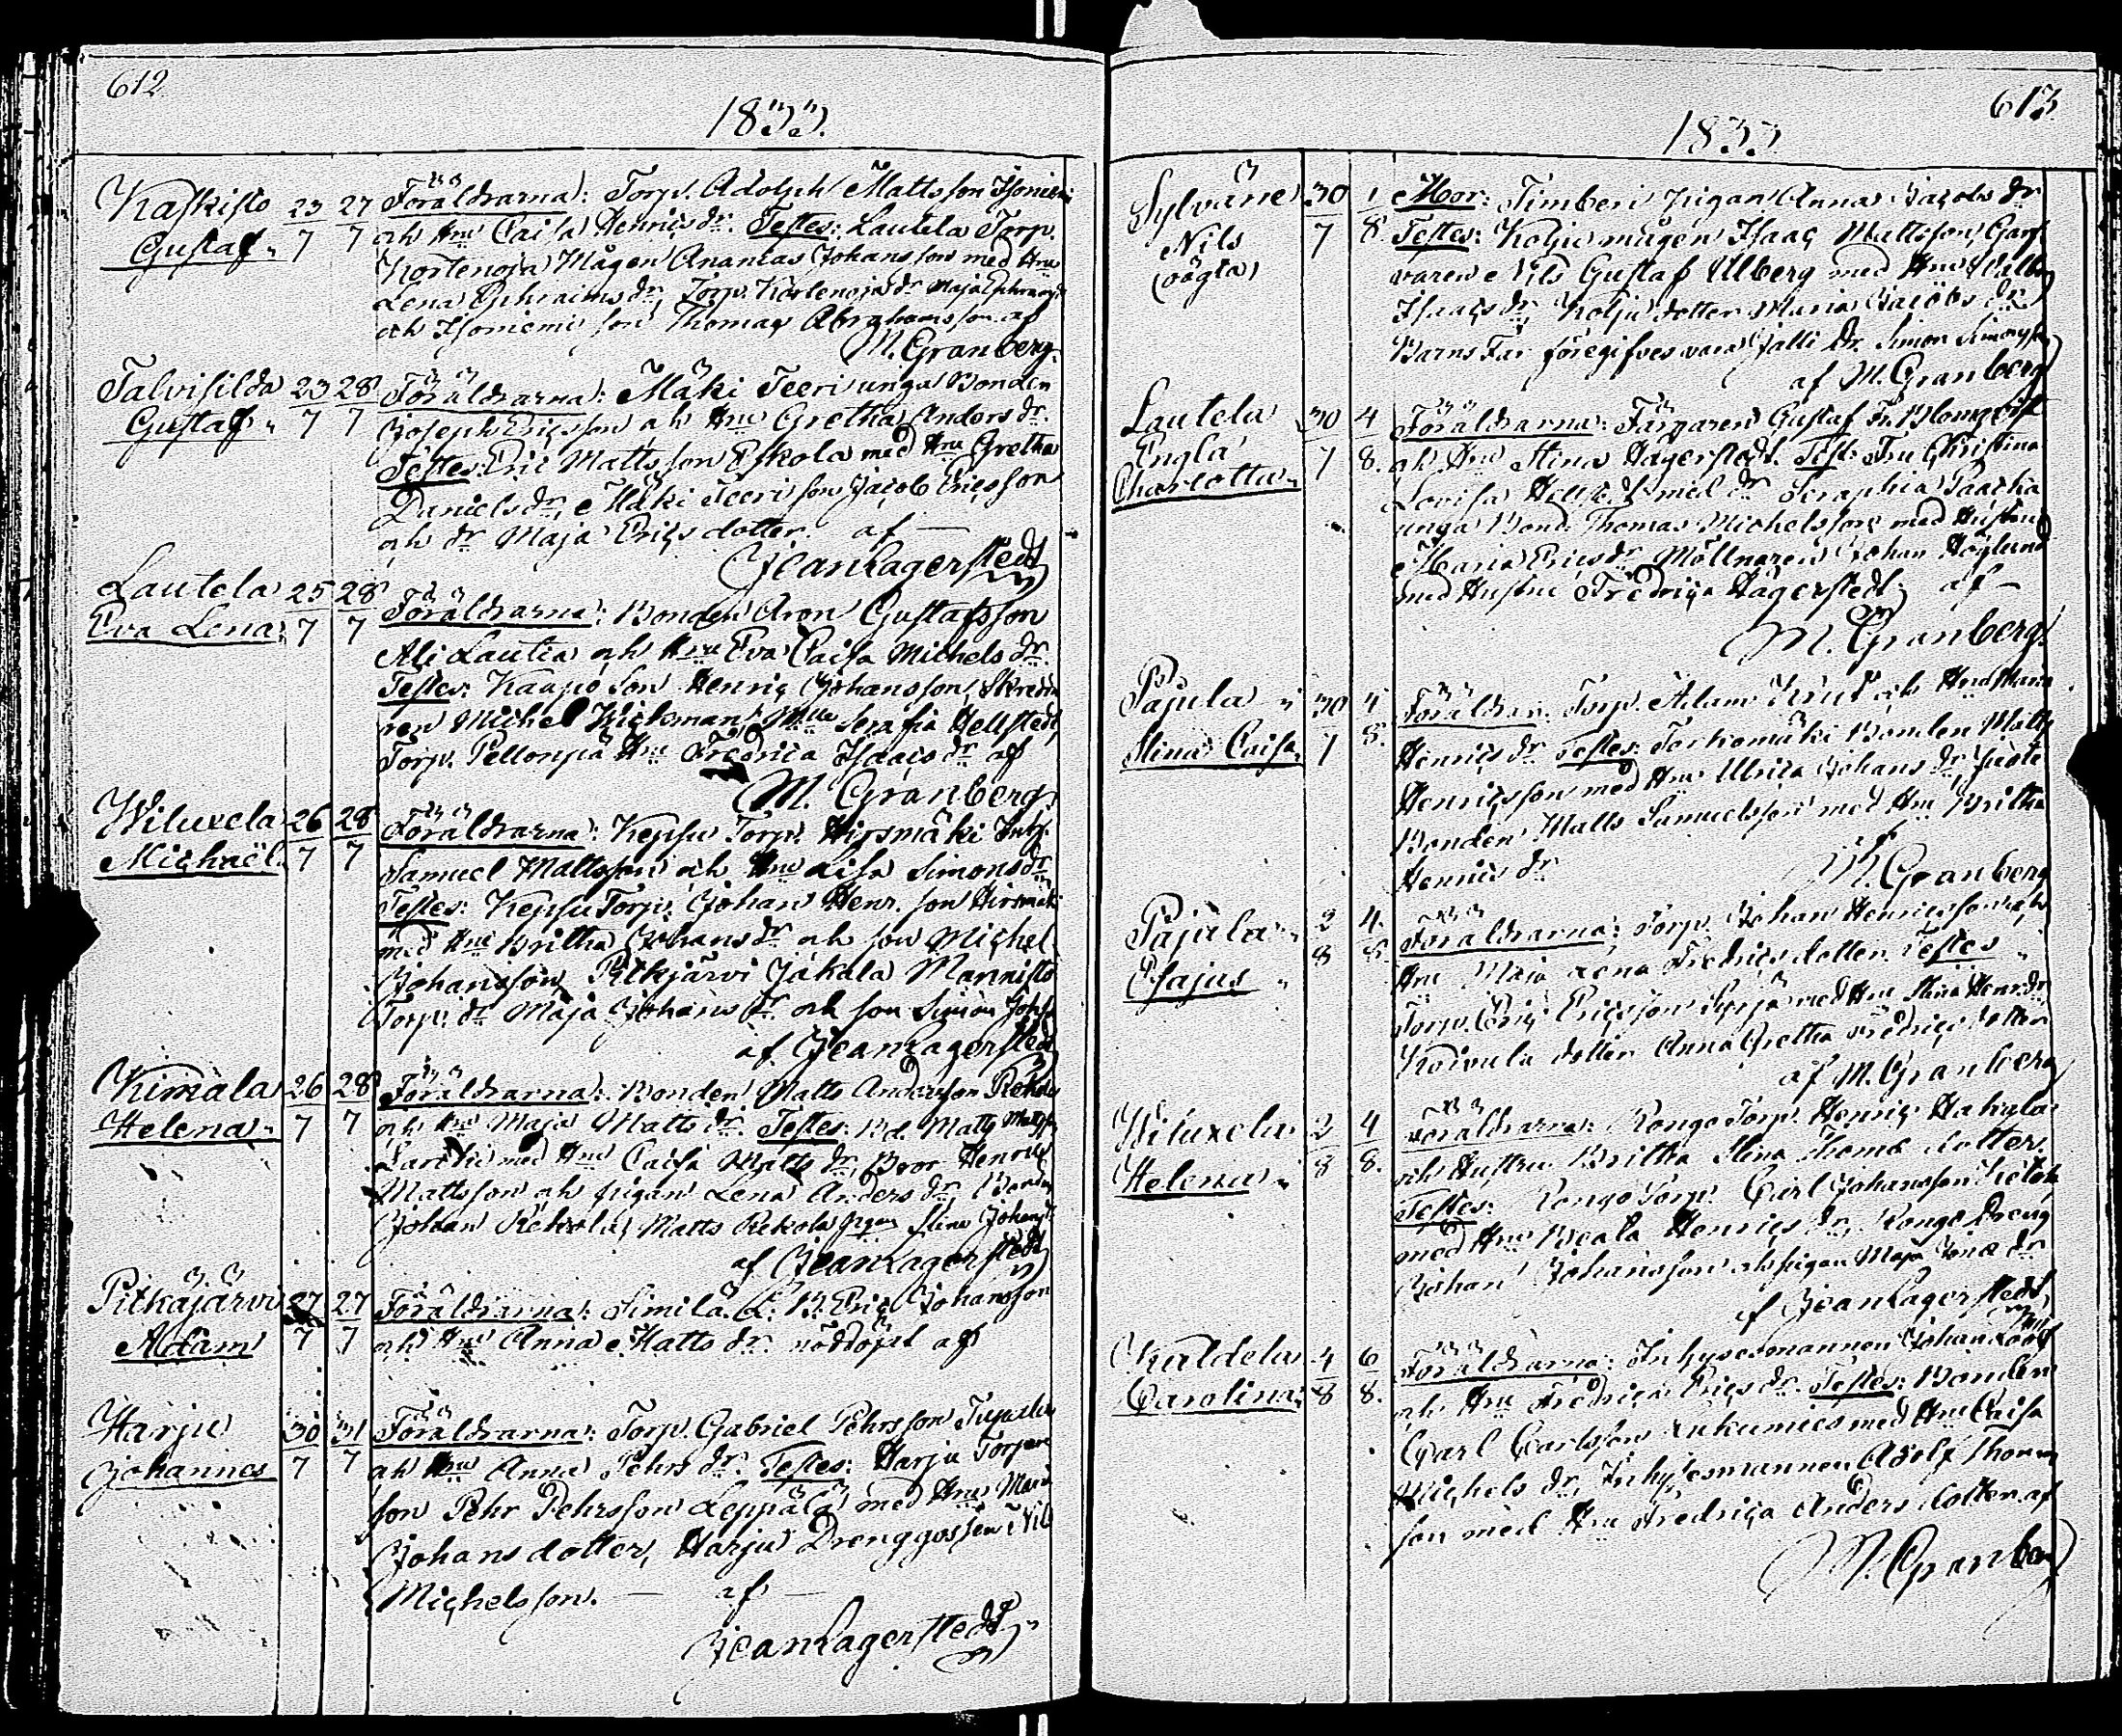 612
1833.
Kaskisto 23 27 Föräldrarna: Torp. Adolph Mattsson Isoniemi
Gustaf 7 7 och Hu Caisa Henrics dr. Testes: Lautela Torp.
Kortenoja Mågen Ananias Johansson med Hu
Lena Ephraims dr, Torp. Kortenoja dr Maja Ephraims
och Isoniemi son Thomas Abrahamsson af
M. Granberg.
Talvisilda 23 28 Föräldrarna: Mäki Teeri unga Bonden
Gustaf 7 7 Joseph Ericsson och Hu Gretha Anders dr.
Testes: Eric Mattsson Eskola med Hu Gretha
Daniels dr, Mäki Teeri son Jacob Ericsson
och dr Maja Erics dotter. af
Jean Lagerstedt
Lautela 25 28 Föräldrarna: Bonden Aron Gustafsson
Eva Lena 7 7 Ali Lautia och Hu Eva Caisa Michels dr.
Testes: Kaupo son Henric Johansson, Skreddaren
Michel Wicksman, Mlle Serafia Hellstedt,
Torp. Pellonpä Hu Fredrica Isaacs dr af
M. Granberg
Wiluxela 26 28 Föräldrarna: Kepsu Torp. Hirsmäki
Michaël. 7 7 Samuel Mattsson och Hu Caisa Simons dr
Testes: Kepsu Torp. Johan Henr. son Hirsmäki
med Hu Britha Johans dr och son Michel
Johansson, Pitkjärvi Jakala Mannisto
Torp. dr Maja Johans dr och son Simon
af Jean Lagerstedt
Kimala 26 28 Föräldrarna: Bonden Matts Andersson Rekola
Helena 7 7 och Hu Maja Matts dr. Testes: Bd. Matts
med Hu Caisa Matts dr, Bror Henric
Mattsson och pigan Lena Anders dr, Bonden
Johan Rekola, Matts Rekola pigan Stina Johans
af Jean Lagerstedt
Pitkäjärvi 27 27 Föräldrarna: Similä L. B. Eric Johansson
Adam 7 7 och Hu Anna Matts dr. nöddöpt af
Harju 30 31 Föräldrarna: Torp. Gabriel Pehrsson
Johannes 7 7 och Hu Anna Pehrs dr. Testes: Harju Torpare
son Pehr Pehrsson Leppälä med Hu Maria
Johans dotter, Harju Drenggossen
Michelsson. — af —
Jean Lagerstedt
613
1833
Sylväne 30 1 Mor: Timberi Pigan Anna Jacobs dr
Nils 7 8. Testes: Kolju mågen Isaac Mattsson, Garf
(oägta) varen Nils Gustaf Ulberg med Hu
Isaacs dr, Kolju dotter Maria Jacobs dr
Barns Far föregifves vara Jalli Dr. Simon Simonsson
af M. Granberg
Lautela 30 4 Föräldrarna: Färgaren Gustaf Fr. Blomqvist
Engla 7 8. och Hu Stina Hagerstedt. Test: Fru Christina
Charlotta Lovisa Hellstedt med dr Seraphia,
unga Bond. Thomas Michelsson med Hustrun
Maria Erics dr, Möllnaren Johan Höglund
med Hustru Fredrica Hägerstedt; af —
M. Granberg
Pajula 30 4 Föräldrar: Torp. Adam och Hu Maria
Stina Caisa 7 8. Henrics dr Testes: Torkomäki Bonden Matts
Henricsson med Hu Ulrica Johans dr,
Bonden Matts Samuelsson med Hu Britha
Henrics dr
M. Granberg
Pajula 2 4. Föräldrarna: Torp. Johan Henricsson och
Esajas 8 8. Hu Maja Lena Fredrics dotter Testes
Torp. Eric Ericsson med Hu Stina Henr. dr
Koivula dotter Anna Gretha Fredrics dotter
af M. Granberg
Wiluxela 2 4 Föräldrarna: Rongo Torp. Henric Hakala
Helena 8 8. och Hustru Britha Stina Thoms dotter.
Testes: Rongo Torp. Carl Johansson
med Hu Beata Henrics dr, Rongo Dreng
Johan Johansson och pigan Maja dr
af Jean Lagerstedt
Kaldela 4 6 Föräldrarna: Inhysesmannen Johan
Carolina 8 8. och Hu Fredrica Erics dr. Testes: Bonden
Carl Carlsson med Hu Caisa
Michels dr, Inhysesmannen Adolf Thomas
son med Hu Fredrica Anders dotter af
M. Granberg